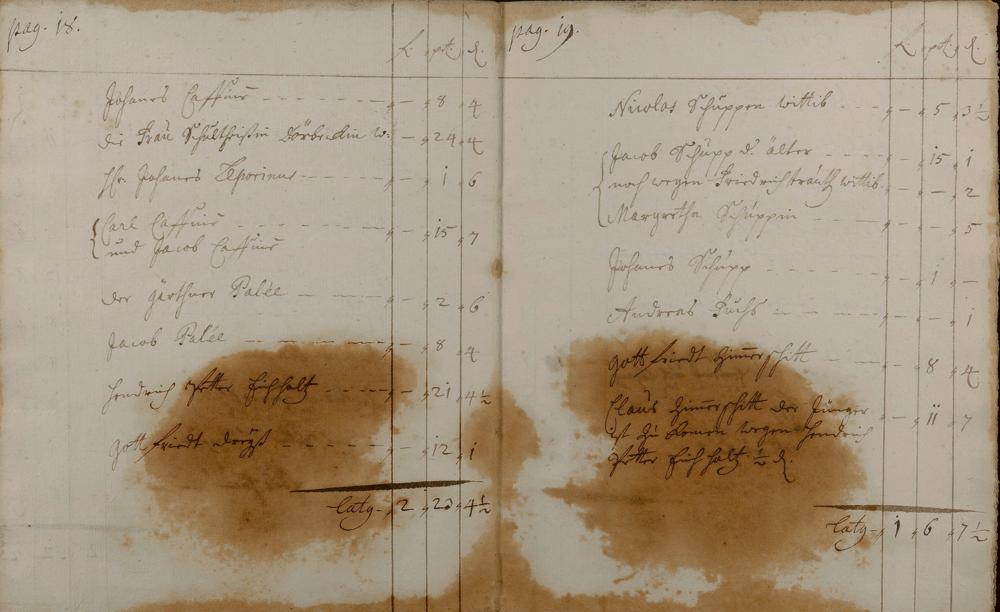 pag. 18.
L. pct. d.
Johanes Caffuir - - - - „ — „ 8 „ 4
die Frau Schultheisin Dörbeckin w: „ — „ 24 „ 4
Hr. Johanes Leporinus - - - „ — „ 1 „ 6
Carl Caffuir - - - -
und Jacob Caffuir „ — „ 15 „ 7
der gärthner Palée - - - „ — „ 2 „ 6
Jacob Palée - - - - „ — „ 8 „ 4
Henderich Petter Eichholtz - - - „ — „ 21 „ 4½
Gottfriedt - - - - „ — „ 12 „ 1
Latg - „ 2 „ 23 „ 4½
pag. 19.
L. pct. d.
Nicolas Schuppen wittib - - - „ — „ 5 „ 3½
Jacob Schupp d. älter - - - - „ — „ 15 „ 1
noch wegen Friedrich wittib „ — „ — „ 2
Margretha Schuppin - - - „ — „ — „ 5
Johanes Schupp - - - - „ — „ 1 „ —
Andreas Fuchs - - - - „ — „ — „ 1
Gottfriedt Zimerschitt „ — „ 8 „ 4
Claus Zimerschitt der Jünger - „ — „ 11 „ 7
ist zu komen wegen Hendrich
Petter Eichholtz ½ d.
Latg - „ 1 „ 6 „ 7½